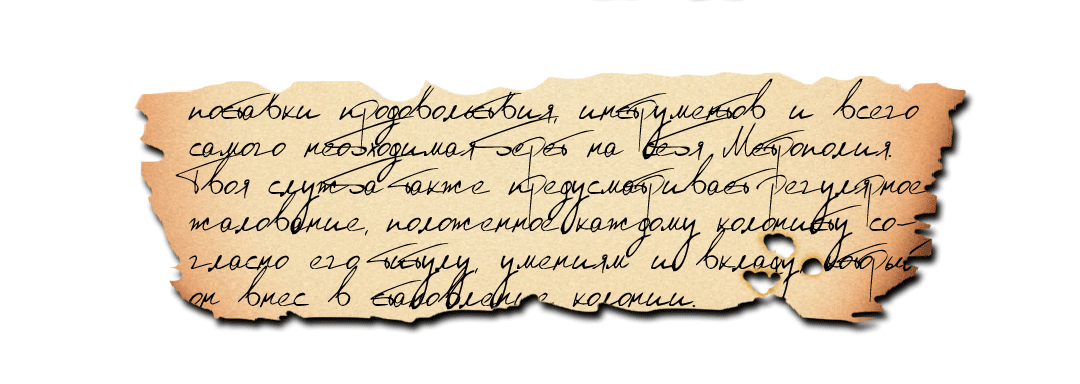 поставки продовольствия, инструментов и всего
самого необходимая берет на себя Метрополия.
Твоя служба также предусматривает регулярное
жалование, положенное каждому колонисту со-
гласно его титулу, умениям и вкладу, который
он внес в становление колонии.